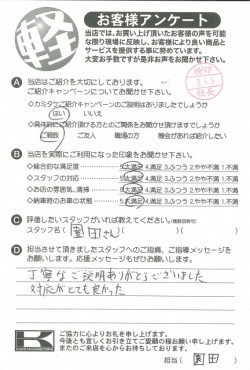 軽
お客様アンケート
当店では、お買い上げ頂いたお客様の声を可能
な限り現場に反映し、お客様により良い商品と
サービスを提供する事に努めています。
大変お手数ですが是非お声をお聞かせ下さい。
A 当店はご紹介を大切にしております。
ご紹介キャンペーンについてお聞かせ下さい。
◇カミタケご紹介キャンペーンのご説明はありましたでしょうか
はい いいえ
◇具体的にご紹介頂ける方とのご関係をお聞かせ頂けますでしょうか
ご親戚 ご友人 職場の方 機会があれば紹介したい
B 当店を実際にご利用になった印象をお聞かせ下さい。
◇総合的な満足度 5.大満足 4.満足 3.ふつう 2.やや不満 1.不満
◇スタッフの対応 5.大満足 4.満足 3.ふつう 2.やや不満 1.不満
◇お店の雰囲気、清掃 5.大満足 4.満足 3.ふつう 2.やや不満 1.不満
◇納車時のお車の状態 5.大満足 4.満足 3.ふつう 2.やや不満 1.不満
C 評価したいスタッフがいれば教えてください。
スタッフ名( 園田さん )
D 担当させて頂きましたスタッフへのご指摘、ご指導メッセージを
お願いします。応援メッセージもぜひお願いします。
丁寧なご説明ありがとうございました
対応がとても良かった
K
ご協力に心よりお礼を申し上げます。
今後とも宜しくお引き立てご愛顧の程お願い申し上げます。
またのご来店を心からお待ちしております。
担当( 園田 )